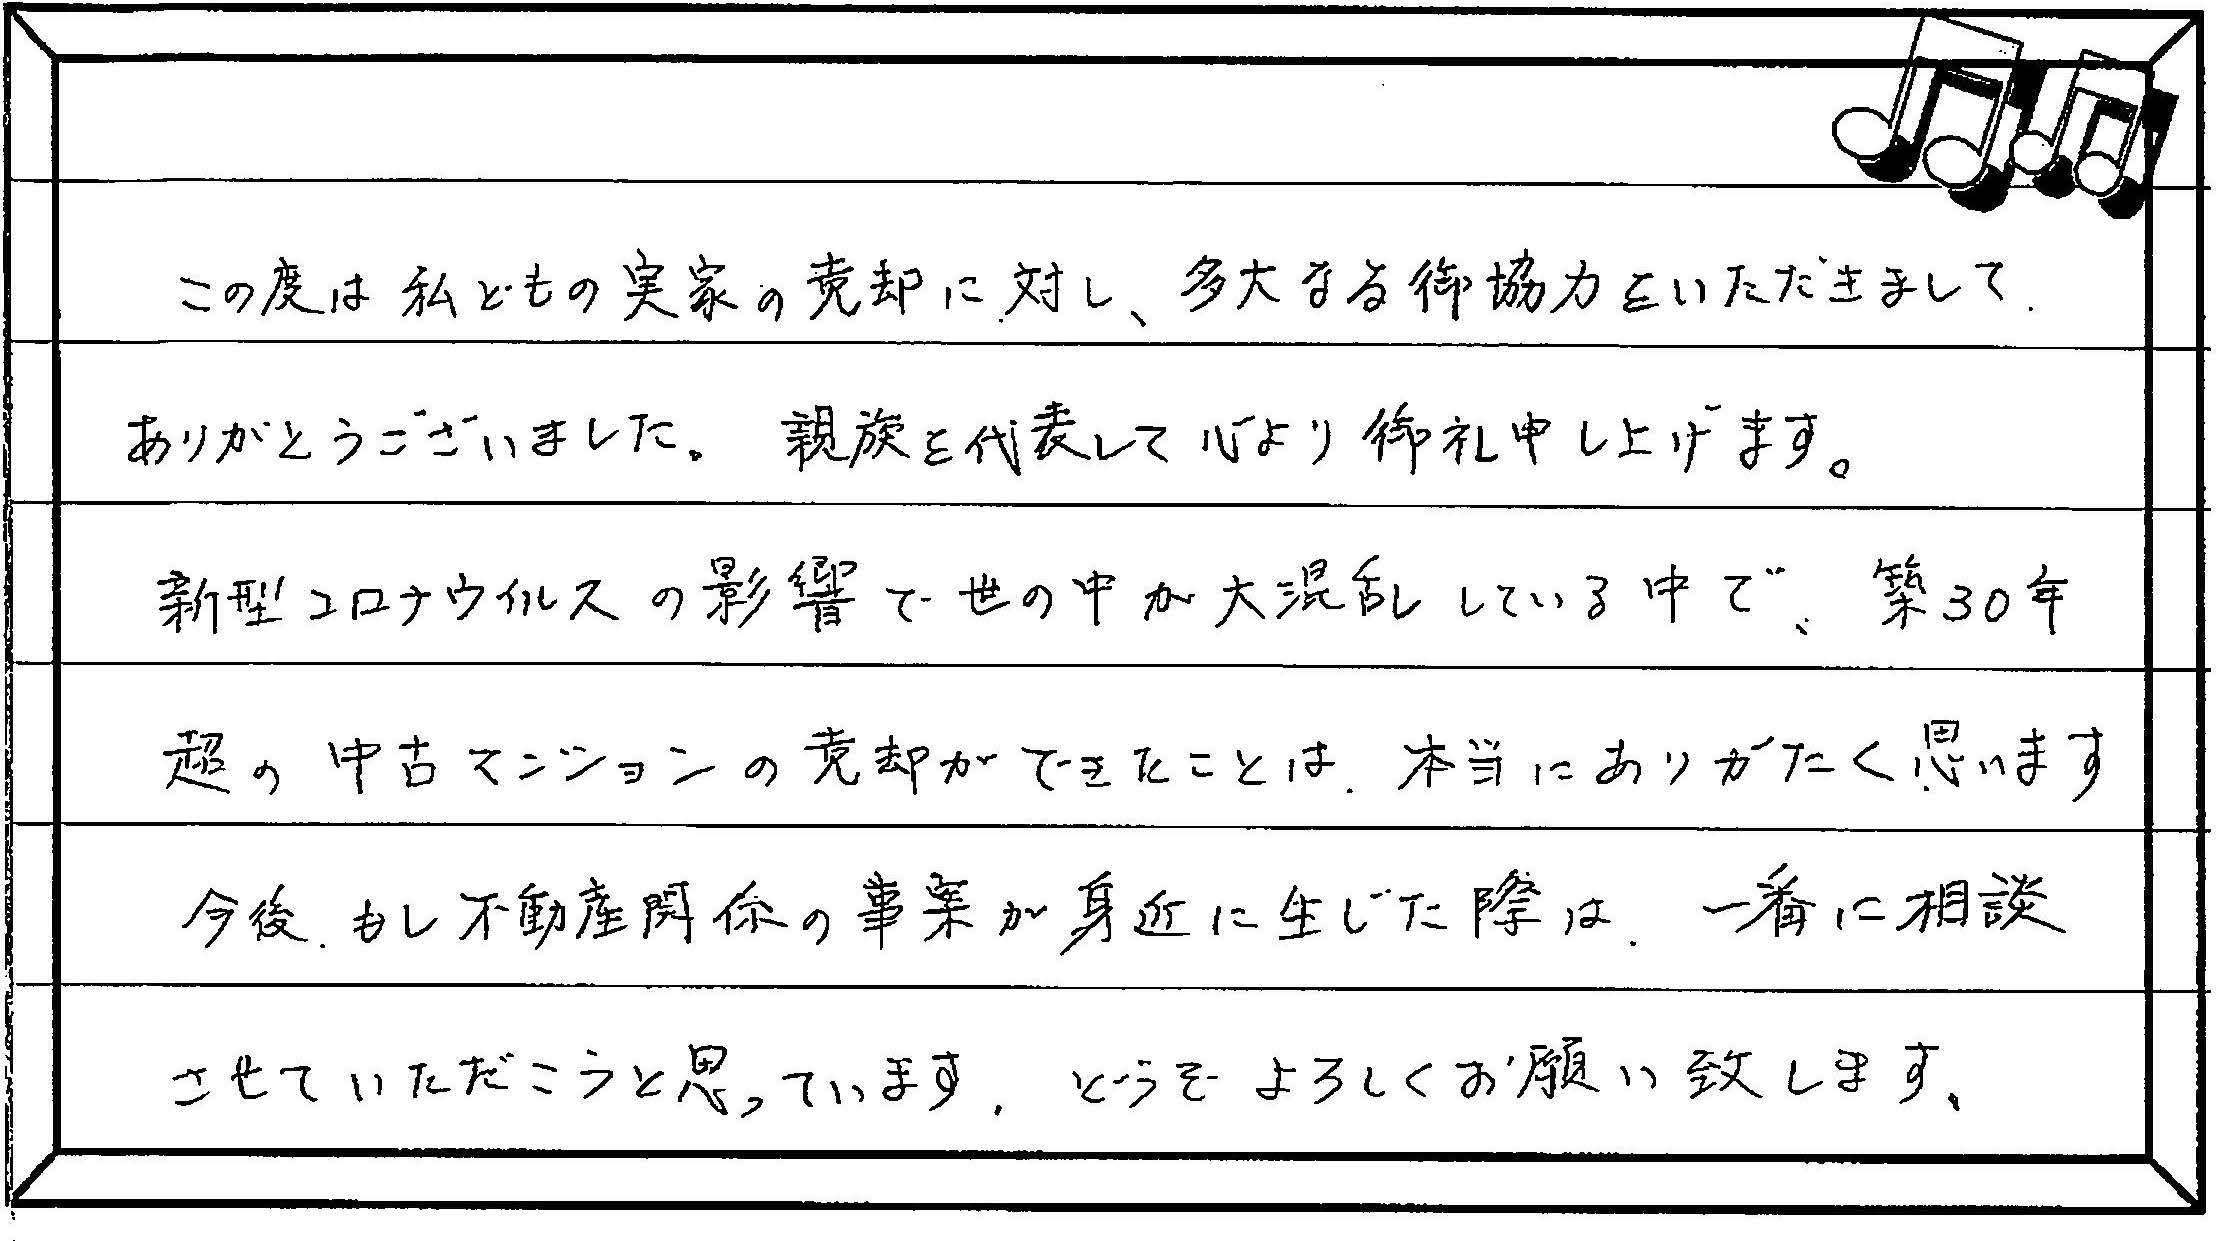 この度は私どもの実家の売却に対し、多大なる御協力をいただきまして、
ありがとうございました。親族を代表して心より御礼申し上げます。
新型コロナウイルスの影響で世の中が大混乱している中で、築30年
超の中古マンションの売却ができたことは、本当にありがたく思います
今後、もし不動産関係の事案が身近に生じた際は、一番に相談
させていただこうと思っています。どうぞよろしくお願い致します。